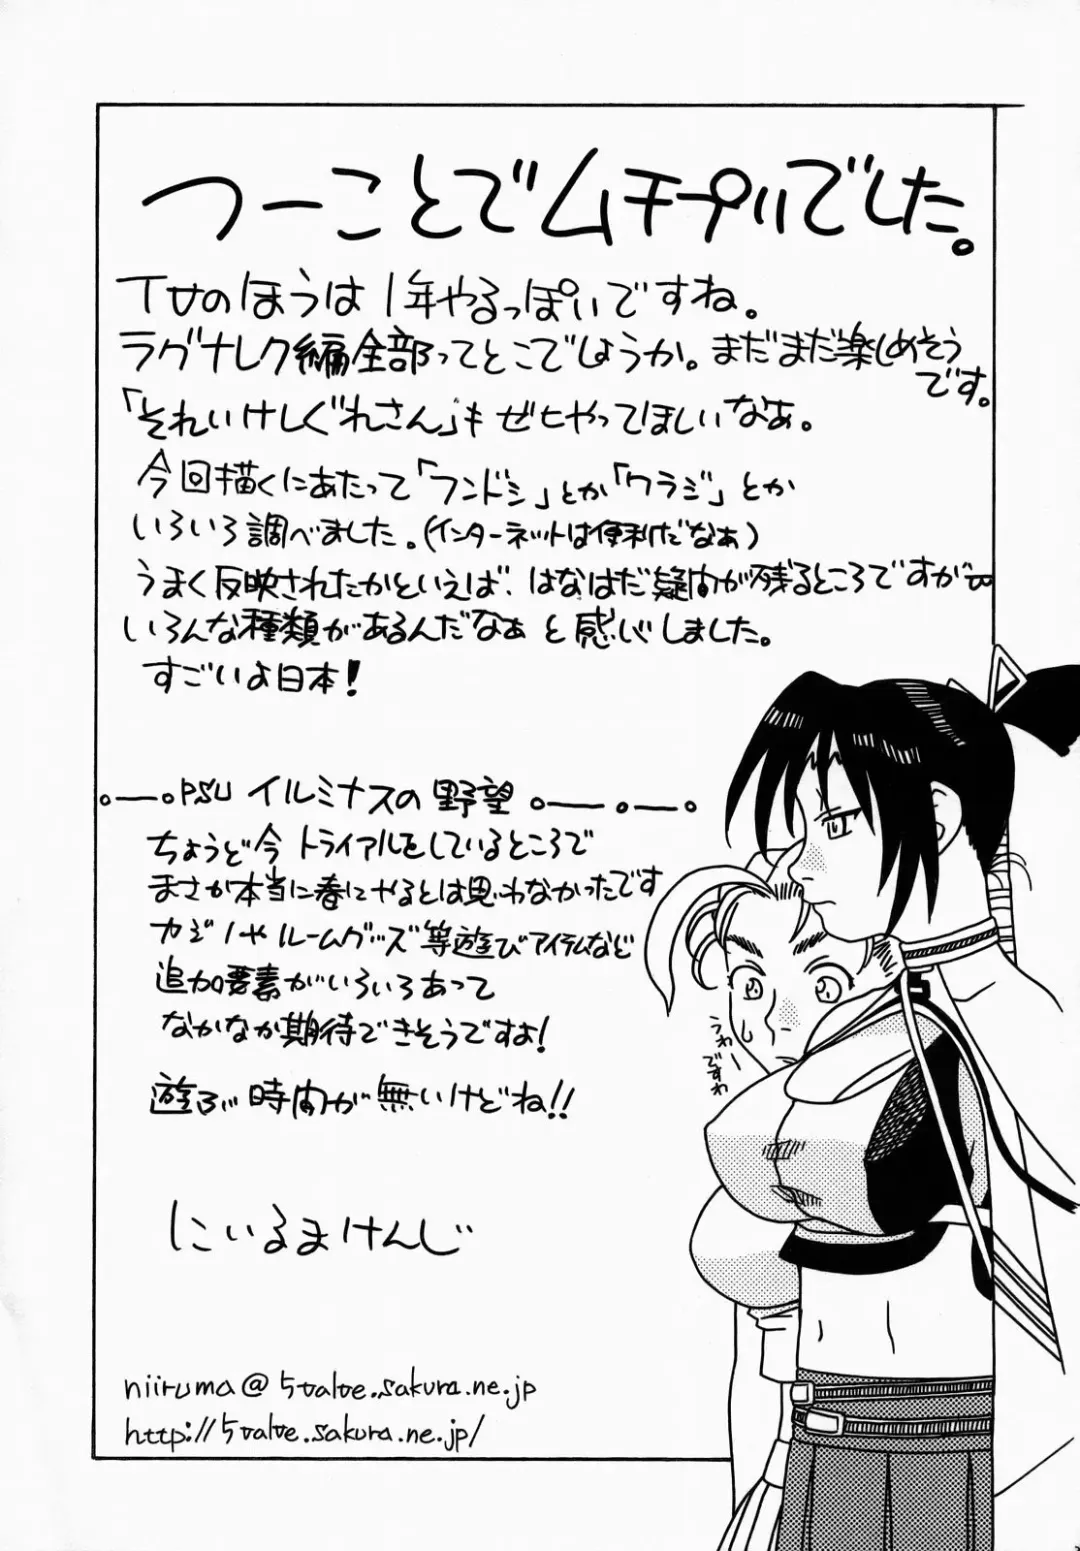 つーことでムチプリでした。
TVのほうは1年やるっぽいですね。
ラグナレク編全部ってとこでしょうか。まだまだ楽しめそう
です。
「それいけしぐれさん」もぜヒやってほしいなぁ。
今回描くにあたって「フンドシ」とか「ワラジ」とか
いろいろ調べました。(インターネットは便利だなぁ)
うまく反映されたかといえば、はなはだ疑问が残るところですが
いろんな種類があるんだなぁと感じしました。
すごいよ日本!
PSU イルミナスの野望
ちょうど今トライアルをしているところで
まさか本当に春にやるとは思わなかったです
カジノやルームグッズ等遊びアイテムなど
追加要素がいろいろあって
なかなか期待できそうですよ!
遊ぶ時间が無いけどね!!
うわー
ですわ
にいるまけんじ
niiruma@5valve.sakura.ne.jp
http://5valve.sakura.ne.jp/